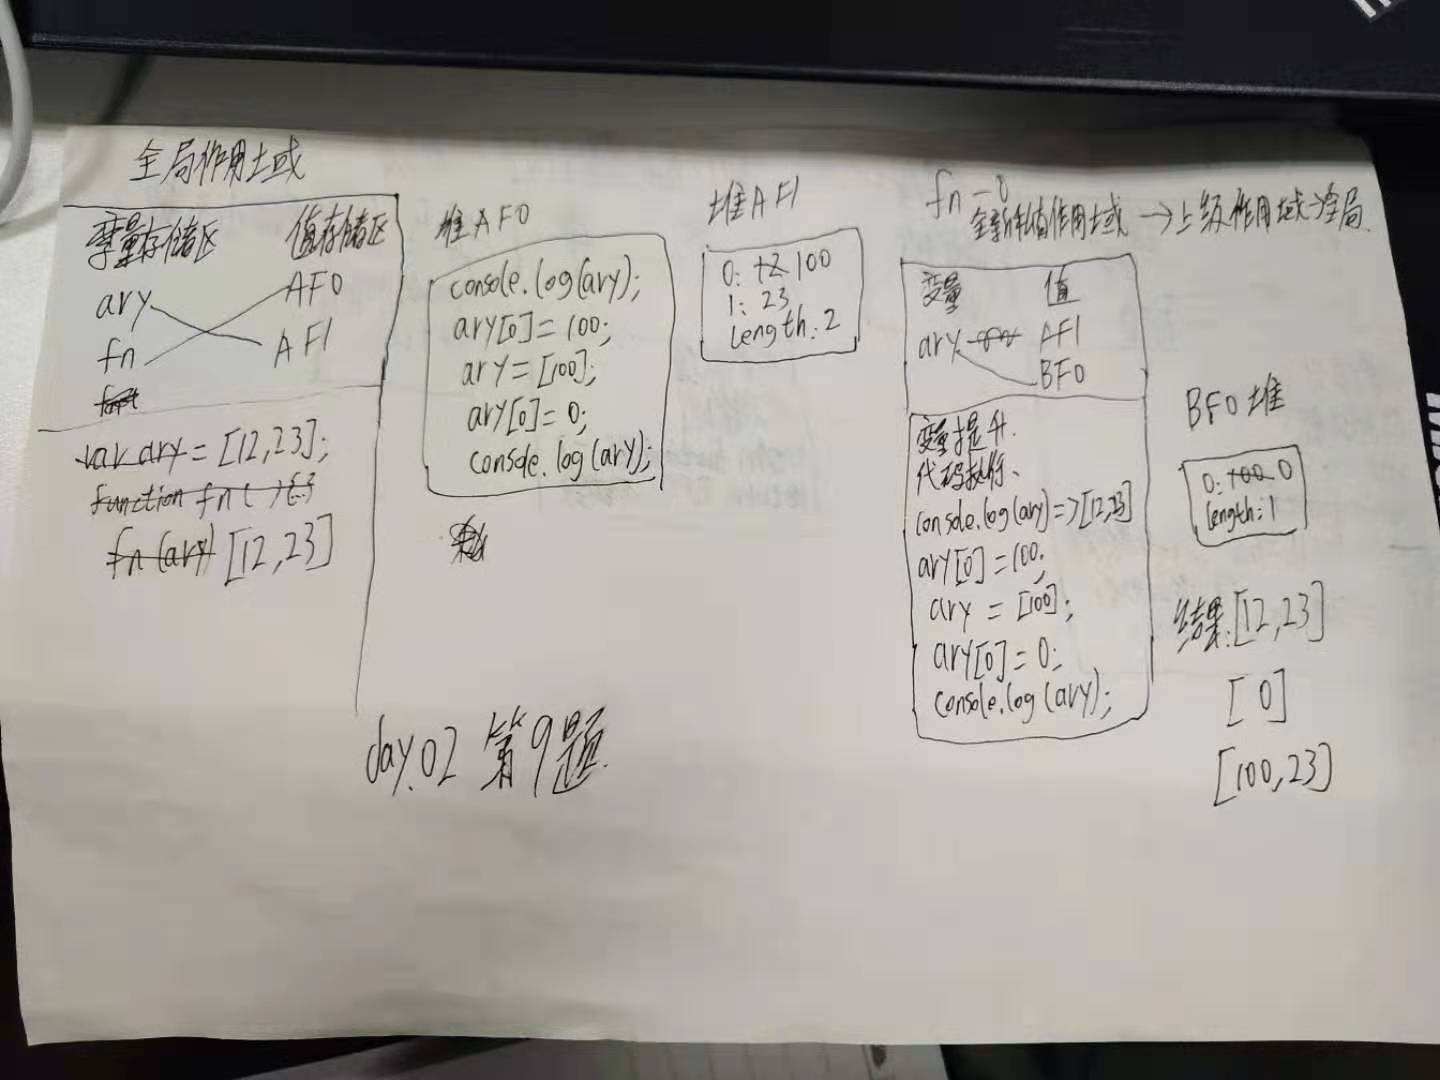 全局作用域
变量存储区 值存储区
ary AF0
fn AF1
var ary = [12,23];
function fn( ){..}
fn(ary) [12,23]
堆AF0
console.log(ary);
ary[0]=100;
ary=[100];
ary[0]=0;
console.log(ary);
堆AF1
0: 12 100
1: 23
length:2
fn-0
全新私有作用域 →上级作用域→全局
变量 值
ary AF1
BF0
变量提升.
代码执行、
console.log(ary)=>[12,23]
ary[0]=100;
ary=[100];
ary[0]=0;
console.log(ary);
BF0堆
0:100 0
length:1
结果:[12,23]
[0]
[100,23]
day.02 第9题.